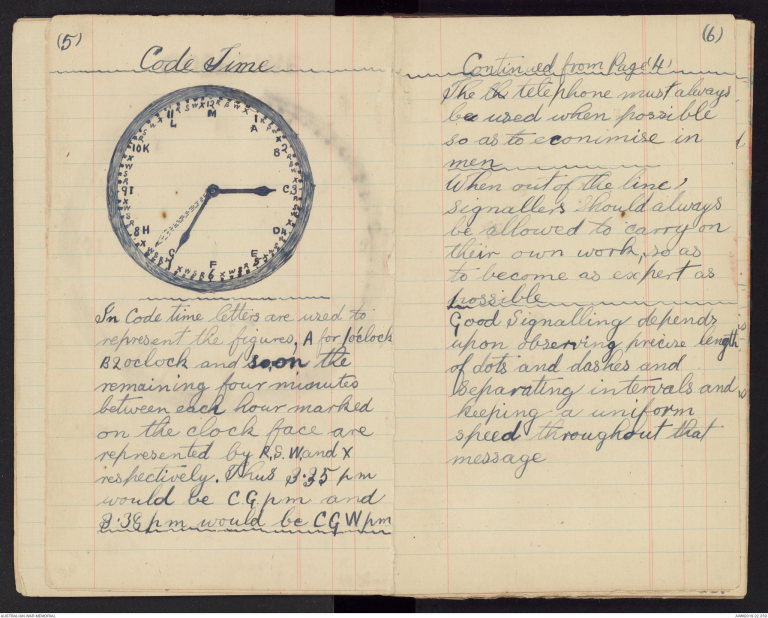 (5)
Code Time
M
I
A
2
B
C3
D
E
F
6
G
8H
9I
10K
L
In Code time letters are used to
represent the figures, A for 1 oclock
B 2 oclock and so on the
remaining four minutes
between each hour marked
on the clock face are
represented by R, S, W, and X
respectively. Thus 3.35 pm
would be C.G. pm and
3.38 pm would be CGW pm
(6)
Continued from Page 4
The telephone must always
be used when possible
so as to econimise in
men
When out of the line,
signallers should always
be allowed to carry on
their own work, so as
to become as expert as
possible
Good Signalling depends
upon observing precise length
of dots and dashes and
separating intervals and
keeping a uniform
speed throughout that
message
AUSTRALIAN WAR MEMORIAL